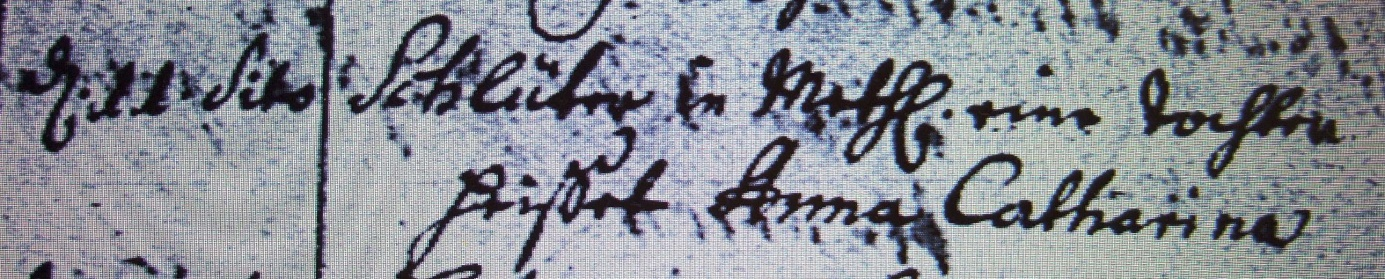 d. 11 dito Schlüter in Meth. eine tochter
heißet Anna Catharina